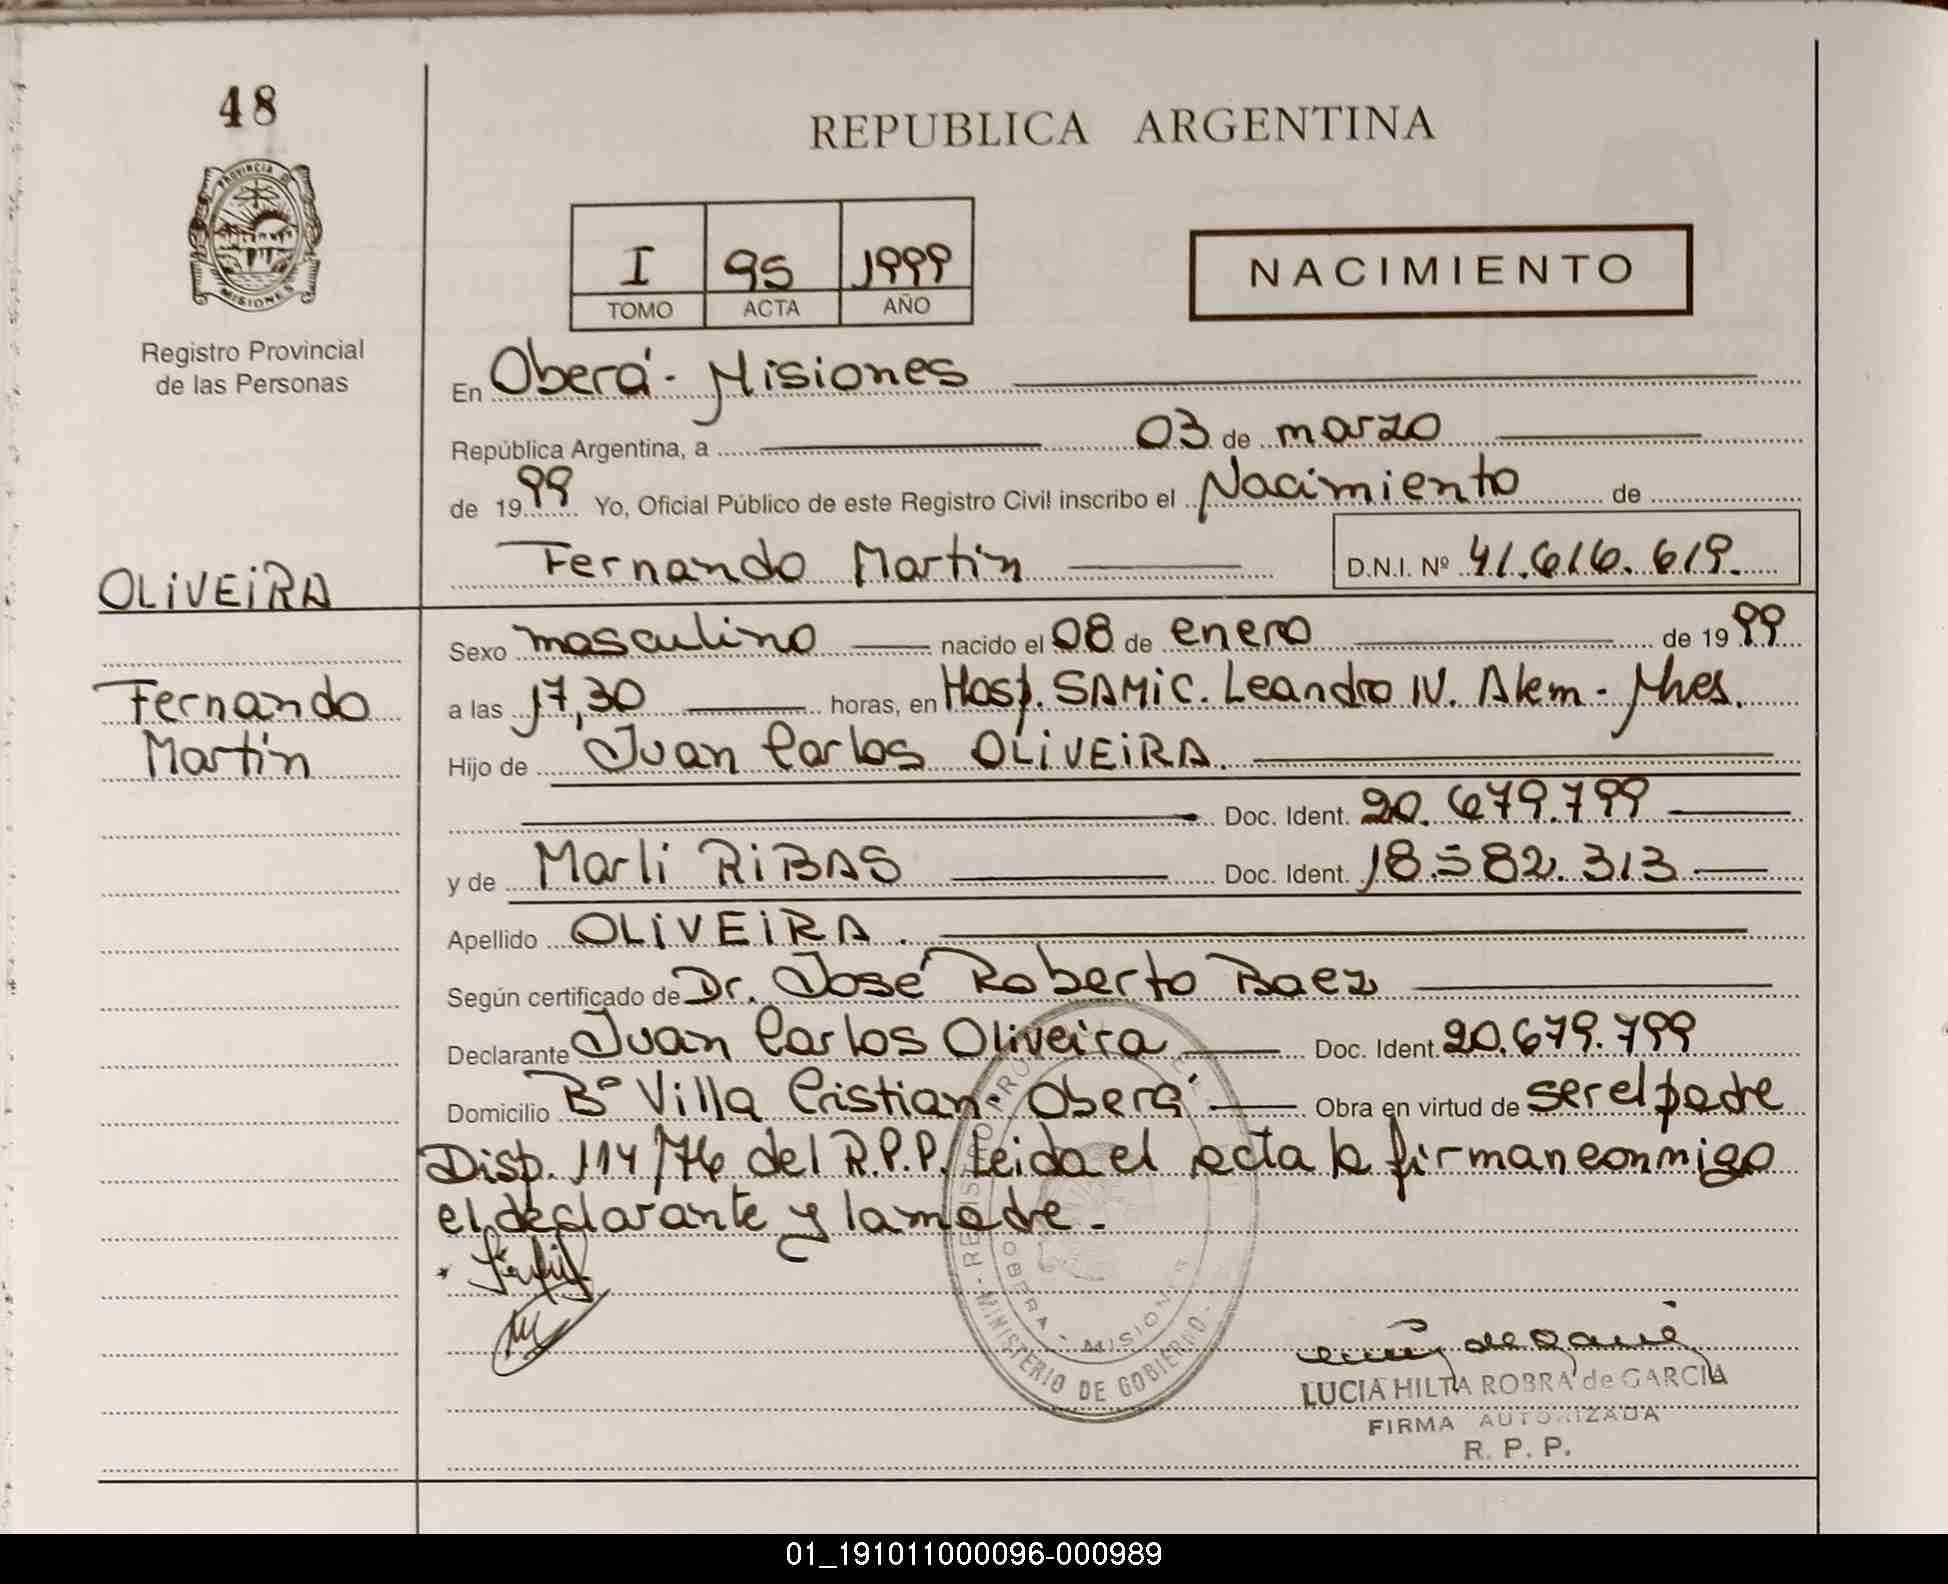 48
REPUBLICA ARGENTINA
PROVINCIA DE
MISIONES
Registro Provincial
de las Personas
I 95 1999
TOMO ACTA AÑO
NACIMIENTO
En Oberá - Misiones
República Argentina, a 03 de marzo
de 1999 Yo, Oficial Público de este Registro Civil inscribo el Nacimiento de
Fernando Martín D.N.I. Nº 41.616.619.
OLIVEIRA
Fernando
Martín
Sexo masculino nacido el 08 de enero de 1999
a las 17,30 horas, en Hosp. SAMIC. Leandro N. Alem - Mnes.
Hijo de Juan Carlos OLIVEIRA.
Doc. Ident. 20.679.799
y de Marli RIBAS Doc. Ident. 18.582.313
Apellido OLIVEIRA.
Según certificado de Dr. José Roberto Baez
Declarante Juan Carlos Oliveira Doc. Ident. 20.679.799
Domicilio Bº Villa Cristian - Oberá Obra en virtud de ser el padre
Disp. 114/76 del R.P.P. Leida el acta la firman conmigo
el declarante y la madre.
OBERA - MISIONES
MINISTERIO DE GOBIERNO
LUCIA HILTA ROBRA de GARCIA
FIRMA AUTORIZADA
R. P. P.
01_191011000096-000989